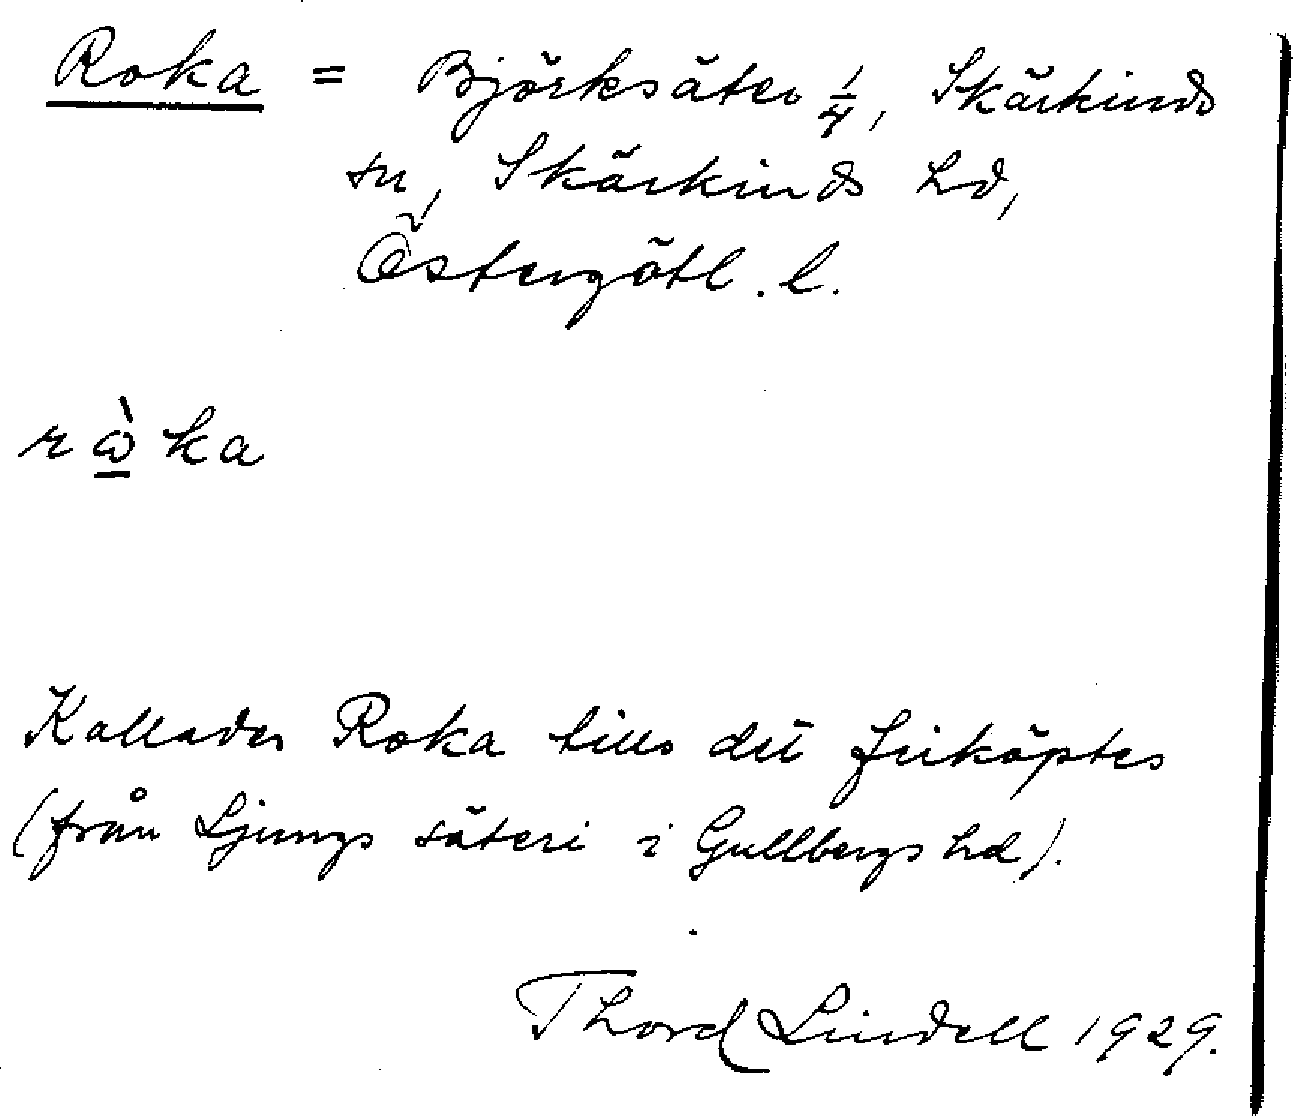 Roka = Björksäter 1/4, Skärkinds
sn, Skärkinds hd,
Östergötl. l.
rὼ̲ka
Kallades Roka tills det friköptes
(från Ljungs säteri i Gullbergs hd).
Thord Lindell 1929.